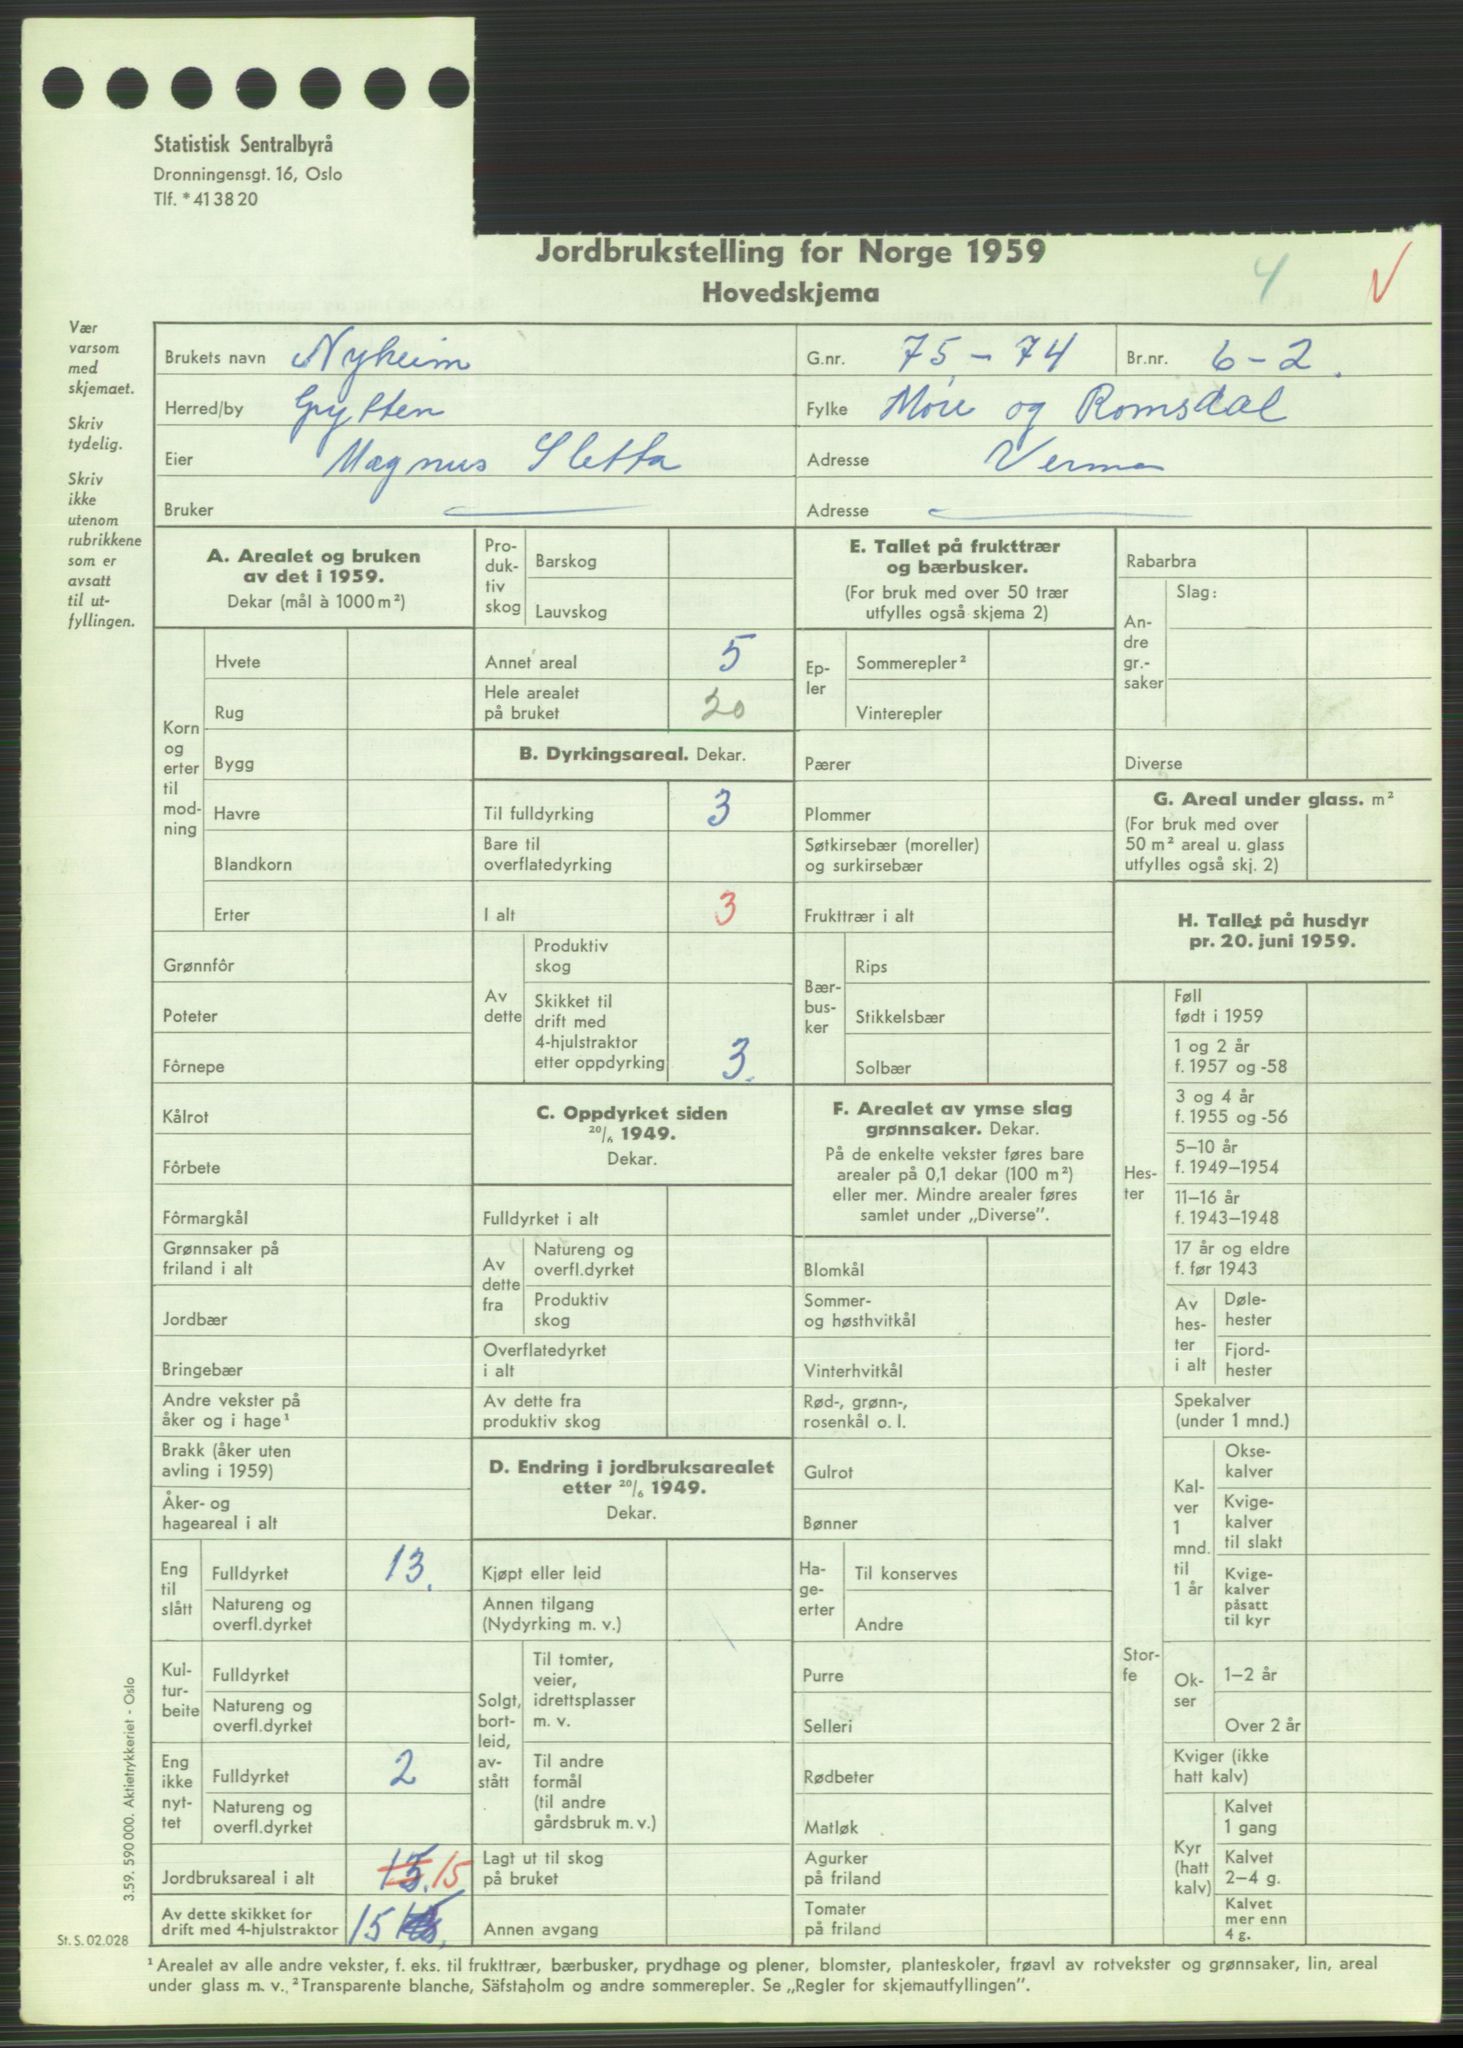 Statistisk Sentralbyrå
Dronningensgt. 16, Oslo
Tlf. * 41 38 20
Jordbrukstelling for Norge 1959
Hovedskjema
4
V
Vær
varsom
med
skjemaet.
Skriv
tydelig.
Skriv
ikke
utenom
rubrikkene
som er
avsatt
til ut-
fyllingen.
Brukets navn Nyheim G.nr. 75 - 74 Br.nr. 6 - 2.
Herred/by Grytten Fylke Møre og Romsdal
Eier Magnus Sletta Adresse Verma
Bruker Adresse
A. Arealet og bruken
av det i 1959.
Dekar (mål à 1000 m²)
Korn
og
erter
til
mod-
ning
Hvete
Rug
Bygg
Havre
Blandkorn
Erter
Grønnfôr
Poteter
Fôrnepe
Kålrot
Fôrbete
Fôrmargkål
Grønnsaker på
friland i alt
Jordbær
Bringebær
Andre vekster på
åker og i hage¹
Brakk (åker uten
avling i 1959)
Åker- og
hageareal i alt
Eng
til
slått
Fulldyrket 13.
Natureng og
overfl.dyrket
Kul-
tur-
beite
Fulldyrket
Natureng og
overfl.dyrket
Eng
ikke
nyt-
tet
Fulldyrket 2
Natureng og
overfl.dyrket
Jordbruksareal i alt 15. 15
Av dette skikket for
drift med 4-hjulstraktor 15
Pro-
duk-
tiv
skog
Barskog
Lauvskog
Annet areal 5
Hele arealet
på bruket 20
B. Dyrkingsareal. Dekar.
Til fulldyrking 3
Bare til
overflatedyrking
I alt 3
Av
dette
Produktiv
skog
Skikket til
drift med
4-hjulstraktor
etter oppdyrking 3.
C. Oppdyrket siden
20/6 1949.
Dekar.
Fulldyrket i alt
Av
dette
fra
Natureng og
overfl.dyrket
Produktiv
skog
Overflatedyrket
i alt
Av dette fra
produktiv skog
D. Endring i jordbruksarealet
etter 20/6 1949.
Dekar.
Kjøpt eller leid
Annen tilgang
(Nydyrking m. v.)
Solgt,
bort-
leid,
av-
stått
Til tomter,
veier,
idrettsplasser
m. v.
Til andre
formål
(til andre
gårdsbruk m. v.)
Lagt ut til skog
på bruket
Annen avgang
E. Tallet på frukttrær
og bærbusker.
(For bruk med over 50 trær
utfylles også skjema 2)
Ep-
ler
Sommerepler²
Vinterepler
Pærer
Plommer
Søtkirsebær (moreller)
og surkirsebær
Frukttrær i alt
Bær-
bus-
ker
Rips
Stikkelsbær
Solbær
F. Arealet av ymse slag
grønnsaker. Dekar.
På de enkelte vekster føres bare
arealer på 0,1 dekar (100 m²)
eller mer. Mindre arealer føres
samlet under „Diverse”.
Blomkål
Sommer-
og høsthvitkål
Vinterhvitkål
Rød-, grønn-,
rosenkål o. l.
Gulrot
Bønner
Ha-
ge-
erter
Til konserves
Andre
Purre
Selleri
Rødbeter
Matløk
Agurker
på friland
Tomater
på friland
Rabarbra
An-
dre
gr.-
saker
Slag:
Diverse
G. Areal under glass. m²
(For bruk med over
50 m² areal u. glass
utfylles også skj. 2)
H. Tallet på husdyr
pr. 20. juni 1959.
Hes-
ter
Føll
født i 1959
1 og 2 år
f. 1957 og -58
3 og 4 år
f. 1955 og -56
5–10 år
f. 1949–1954
11–16 år
f. 1943–1948
17 år og eldre
f. før 1943
Av
hes-
ter
i alt
Døle-
hester
Fjord-
hester
Stor-
fe
Spekalver
(under 1 mnd.)
Kal-
ver
1
mnd.
til
1 år
Okse-
kalver
Kvige-
kalver
til slakt
Kvige-
kalver
påsatt
til kyr
Ok-
ser
1–2 år
Over 2 år
Kviger (ikke
hatt kalv)
Kyr
(hatt
kalv)
Kalvet
1 gang
Kalvet
2–4 g.
Kalvet
mer enn
4 g.
3.59. 590 000. Aktietrykkeriet - Oslo
St. S. 02.028
¹ Arealet av alle andre vekster, f. eks. til frukttrær, bærbusker, prydhage og plener, blomster, planteskoler, frøavl av rotvekster og grønnsaker, lin, areal
under glass m. v. ² Transparente blanche, Säfstaholm og andre sommerepler. Se „Regler for skjemautfyllingen”.